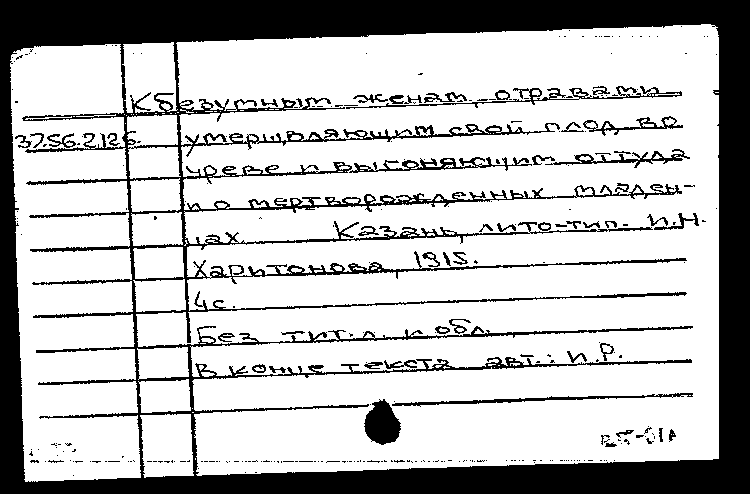 К безумным женам, отравами
37.56.2.126. умерщвляющим свой плод во
чреве и выгоняющим оттуда
и о мертворожденных младен-
цах. Казань, лито-тип. И.Н.
Харитонова, 1915.
4с.
Без тит. л. и обл.
В конце текста авт.: И.Р.